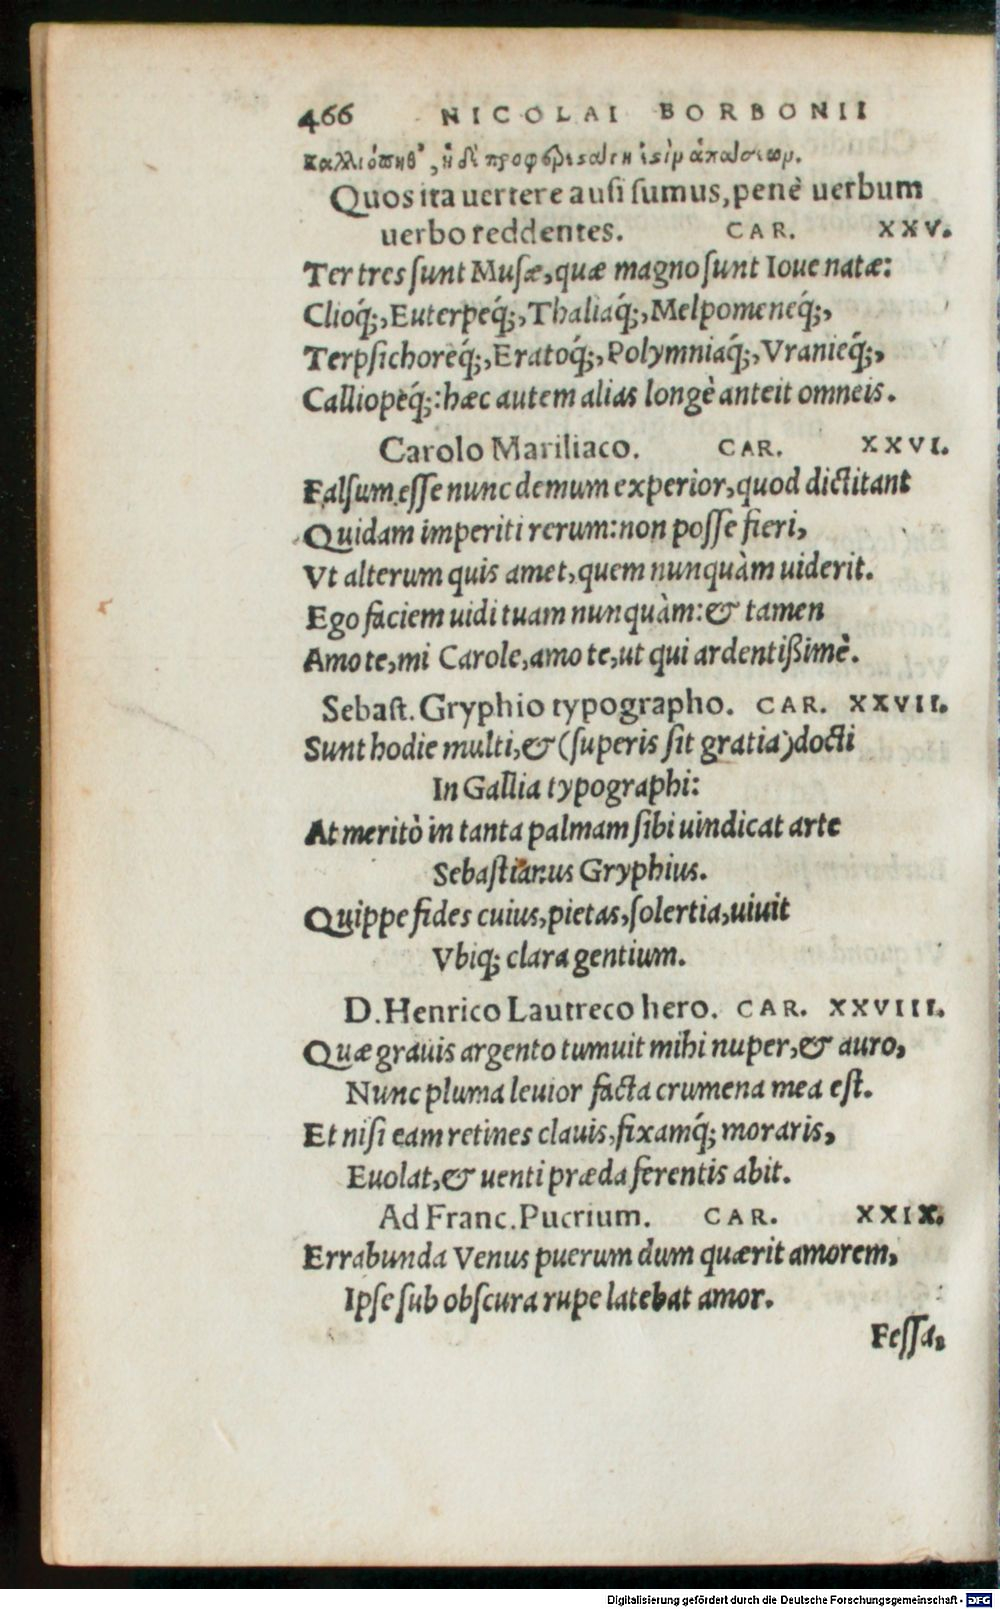 466 NICOLAI BORBONII
Καλλιόπηθ', ἡ δὲ προφερεστάτη ἐστὶν ἁπασέων.
Quos ita uertere ausi sumus, penè uerbum
uerbo reddentes. CAR. XXV.
Ter tres sunt Musæ, quæ magno sunt Ioue natæ:
Clioq́;, Euterpeq́;, Thaliaq́;, Melpomeneq́;,
Terpsichoreq́;, Eratoq́;, Polymniaq́;, Vranieq́;,
Calliopeq́;: hæc autem alias longè anteit omneis.
Carolo Mariliaco. CAR. XXVI.
Falsum esse nunc demum experior, quod dictitant
Quidam imperiti rerum: non posse fieri,
Vt alterum quis amet, quem nunquàm uiderit.
Ego faciem uidi tuam nunquàm: & tamen
Amo te, mi Carole, amo te, ut qui ardentißimè.
Sebast. Gryphio typographo. CAR. XXVII.
Sunt hodie multi, & (superis sit gratia) docti
In Gallia typographi:
At meritò in tanta palmam sibi uindicat arte
Sebastianus Gryphius.
Quippe fides cuius, pietas, solertia, uiuit
Vbiq; clara gentium.
D. Henrico Lautreco hero. CAR. XXVIII.
Quæ grauis argento tumuit mihi nuper, & auro,
Nunc pluma leuior facta crumena mea est.
Et nisi eam retines clauis, fixamq́; moraris,
Euolat, & uenti præda ferentis abit.
Ad Franc. Puerium. CAR. XXIX.
Errabunda Venus puerum dum quærit amorem,
Ipse sub obscura rupe latebat amor.
Fessa,
Digitalisierung gefördert durch die Deutsche Forschungsgemeinschaft - DFG